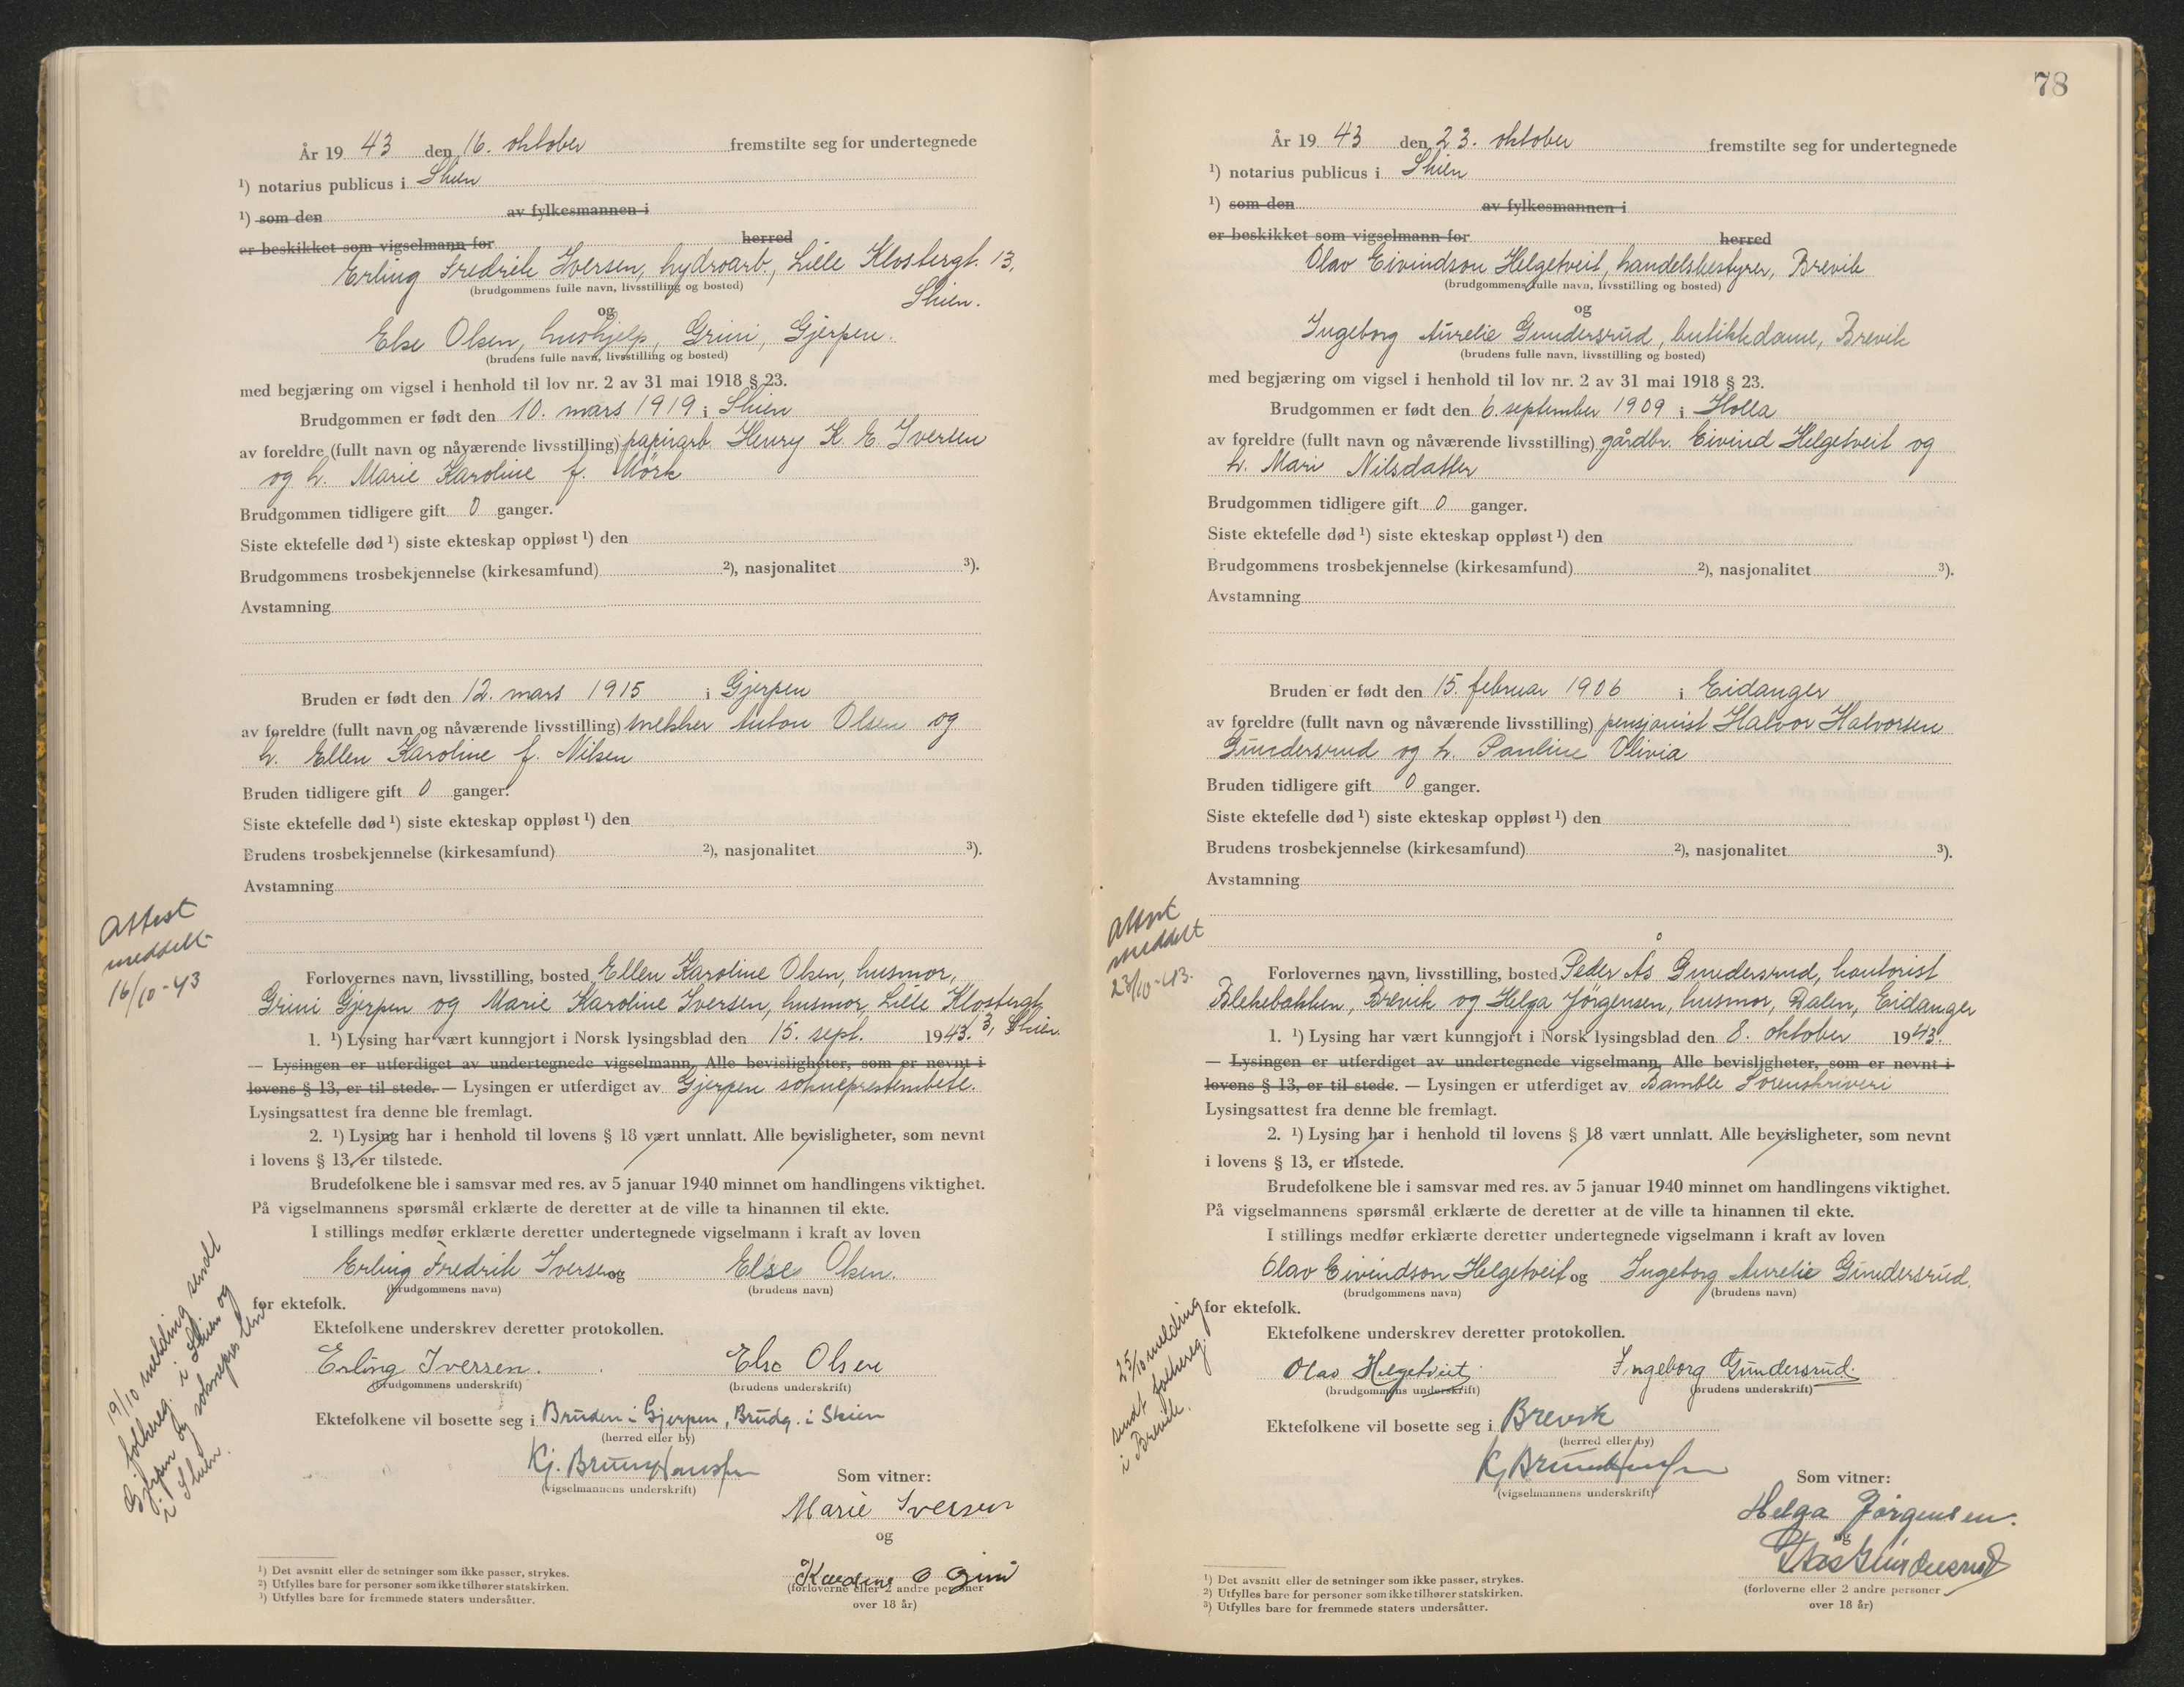 År 19 43 den 16. oktober fremstilte seg for undertegnede
¹) notarius publicus i Skien
¹) som den av fylkesmannen i
er beskikket som vigselmann for herred
Erling Fredrik Iversen, hydroarb., Lille Klostergt. 13,
(brudgommens fulle navn, livsstilling og bosted)
Skien.
og
Else Olsen, hushjelp, Grini, Gjerpen.
(brudens fulle navn, livsstilling og bosted)
med begjæring om vigsel i henhold til lov nr. 2 av 31 mai 1918 § 23.
Brudgommen er født den 10. mars 1919 i Skien
av foreldre (fullt navn og nåværende livsstilling) papirarb. Henry K. E. Iversen
og h. Marie Karoline f. Mörk
Brudgommen tidligere gift 0 ganger.
Siste ektefelle død ¹) siste ekteskap oppløst ¹) den
Brudgommens trosbekjennelse (kirkesamfund) ²), nasjonalitet ³).
Avstamning
Bruden er født den 12. mars 1915 i Gjerpen
av foreldre (fullt navn og nåværende livsstilling) snekker Anton Olsen og
h. Ellen Karoline f. Nilsen
Bruden tidligere gift 0 ganger.
Siste ektefelle død ¹) siste ekteskap oppløst ¹) den
Brudens trosbekjennelse (kirkesamfund) ²), nasjonalitet ³).
Avstamning
Attest
meddelt
16/10-43
Forlovernes navn, livsstilling, bosted Ellen Karoline Olsen, husmor,
Grini Gjerpen og Marie Karoline Iversen, husmor, Lille Klostergt.
1. ¹) Lysing har vært kunngjort i Norsk lysingsblad den 15. sept. 1943. 3, Skien.
— Lysingen er utferdiget av undertegnede vigselmann, Alle bevisligheter, som er nevnt i
lovens § 13, er til stede. — Lysingen er utferdiget av Gjerpen sokneprestembete.
Lysingsattest fra denne ble fremlagt.
2. ¹) Lysing har i henhold til lovens § 18 vært unnlatt. Alle bevisligheter, som nevnt
i lovens § 13, er tilstede.
Brudefolkene ble i samsvar med res. av 5 januar 1940 minnet om handlingens viktighet.
På vigselmannens spørsmål erklærte de deretter at de ville ta hinannen til ekte.
I stillings medfør erklærte deretter undertegnede vigselmann i kraft av loven
Erling Fredrik Iversen og Else Olsen.
(brudgommens navn) (brudens navn)
for ektefolk.
Ektefolkene underskrev deretter protokollen.
Erling Iversen. Else Olsen
(brudgommens underskrift) (brudens underskrift)
Ektefolkene vil bosette seg i Bruden i Gjerpen, Brudg. i Skien
(herred eller by)
Kj. Bruun Hansen
(vigselmannens underskrift)
Som vitner:
Marie Iversen
og
(forloverne eller 2 andre personer
over 18 år)
19/10 melding sendt
folkereg. i Skien og
Gjerpen og soknepresten
i Skien.
¹) Det avsnitt eller de setninger som ikke passer, strykes.
²) Utfylles bare for personer som ikke tilhører statskirken.
³) Utfylles bare for fremmede staters undersåtter.
78
År 19 43 den 23. oktober fremstilte seg for undertegnede
¹) notarius publicus i Skien
¹) som den av fylkesmannen i
er beskikket som vigselmann for herred
Olav Eivindson Helgetveit, handelsbestyrer, Brevik
(brudgommens fulle navn, livsstilling og bosted)
og
Ingeborg Aurelie Gundersrud, butikkdame, Brevik
(brudens fulle navn, livsstilling og bosted)
med begjæring om vigsel i henhold til lov nr. 2 av 31 mai 1918 § 23.
Brudgommen er født den 6. september 1909 i Holla
av foreldre (fullt navn og nåværende livsstilling) gårdbr. Eivind Helgetveit og
h. Mari Nilsdatter
Brudgommen tidligere gift 0 ganger.
Siste ektefelle død ¹) siste ekteskap oppløst ¹) den
Brudgommens trosbekjennelse (kirkesamfund) ²), nasjonalitet ³).
Avstamning
Bruden er født den 15. februar 1906 i Eidanger
av foreldre (fullt navn og nåværende livsstilling) pensjonist Halvor Halvorsen
Gundersrud og h. Pauline Olivia
Bruden tidligere gift 0 ganger.
Siste ektefelle død ¹) siste ekteskap oppløst ¹) den
Brudens trosbekjennelse (kirkesamfund) ²), nasjonalitet ³).
Avstamning
Attest
meddelt
23/10-43.
Forlovernes navn, livsstilling, bosted Peder Ås Gundersrud, kontorist
Blekebakken, Brevik og Helga Jörgensen, husmor, Dalen, Eidanger
1. ¹) Lysing har vært kunngjort i Norsk lysingsblad den 8. oktober 1943.
— Lysingen er utferdiget av undertegnede vigselmann, Alle bevisligheter, som er nevnt i
lovens § 13, er til stede. — Lysingen er utferdiget av Bamble Sorenskriveri
Lysingsattest fra denne ble fremlagt.
2. ¹) Lysing har i henhold til lovens § 18 vært unnlatt. Alle bevisligheter, som nevnt
i lovens § 13, er tilstede.
Brudefolkene ble i samsvar med res. av 5 januar 1940 minnet om handlingens viktighet.
På vigselmannens spørsmål erklærte de deretter at de ville ta hinannen til ekte.
I stillings medfør erklærte deretter undertegnede vigselmann i kraft av loven
Olav Eivindson Helgetveit og Ingeborg Aurelie Gundersrud.
(brudgommens navn) (brudens navn)
for ektefolk.
Ektefolkene underskrev deretter protokollen.
Olav Helgetveit Ingeborg Gundersrud.
(brudgommens underskrift) (brudens underskrift)
Ektefolkene vil bosette seg i Brevik
(herred eller by)
Kj Bruun Hansen
(vigselmannens underskrift)
Som vitner:
Helga Jörgensen.
og
Gundersrud
(forloverne eller 2 andre personer
over 18 år)
25/10 melding
sendt folkereg.
i Brevik.
¹) Det avsnitt eller de setninger som ikke passer, strykes.
²) Utfylles bare for personer som ikke tilhører statskirken.
³) Utfylles bare for fremmede staters undersåtter.